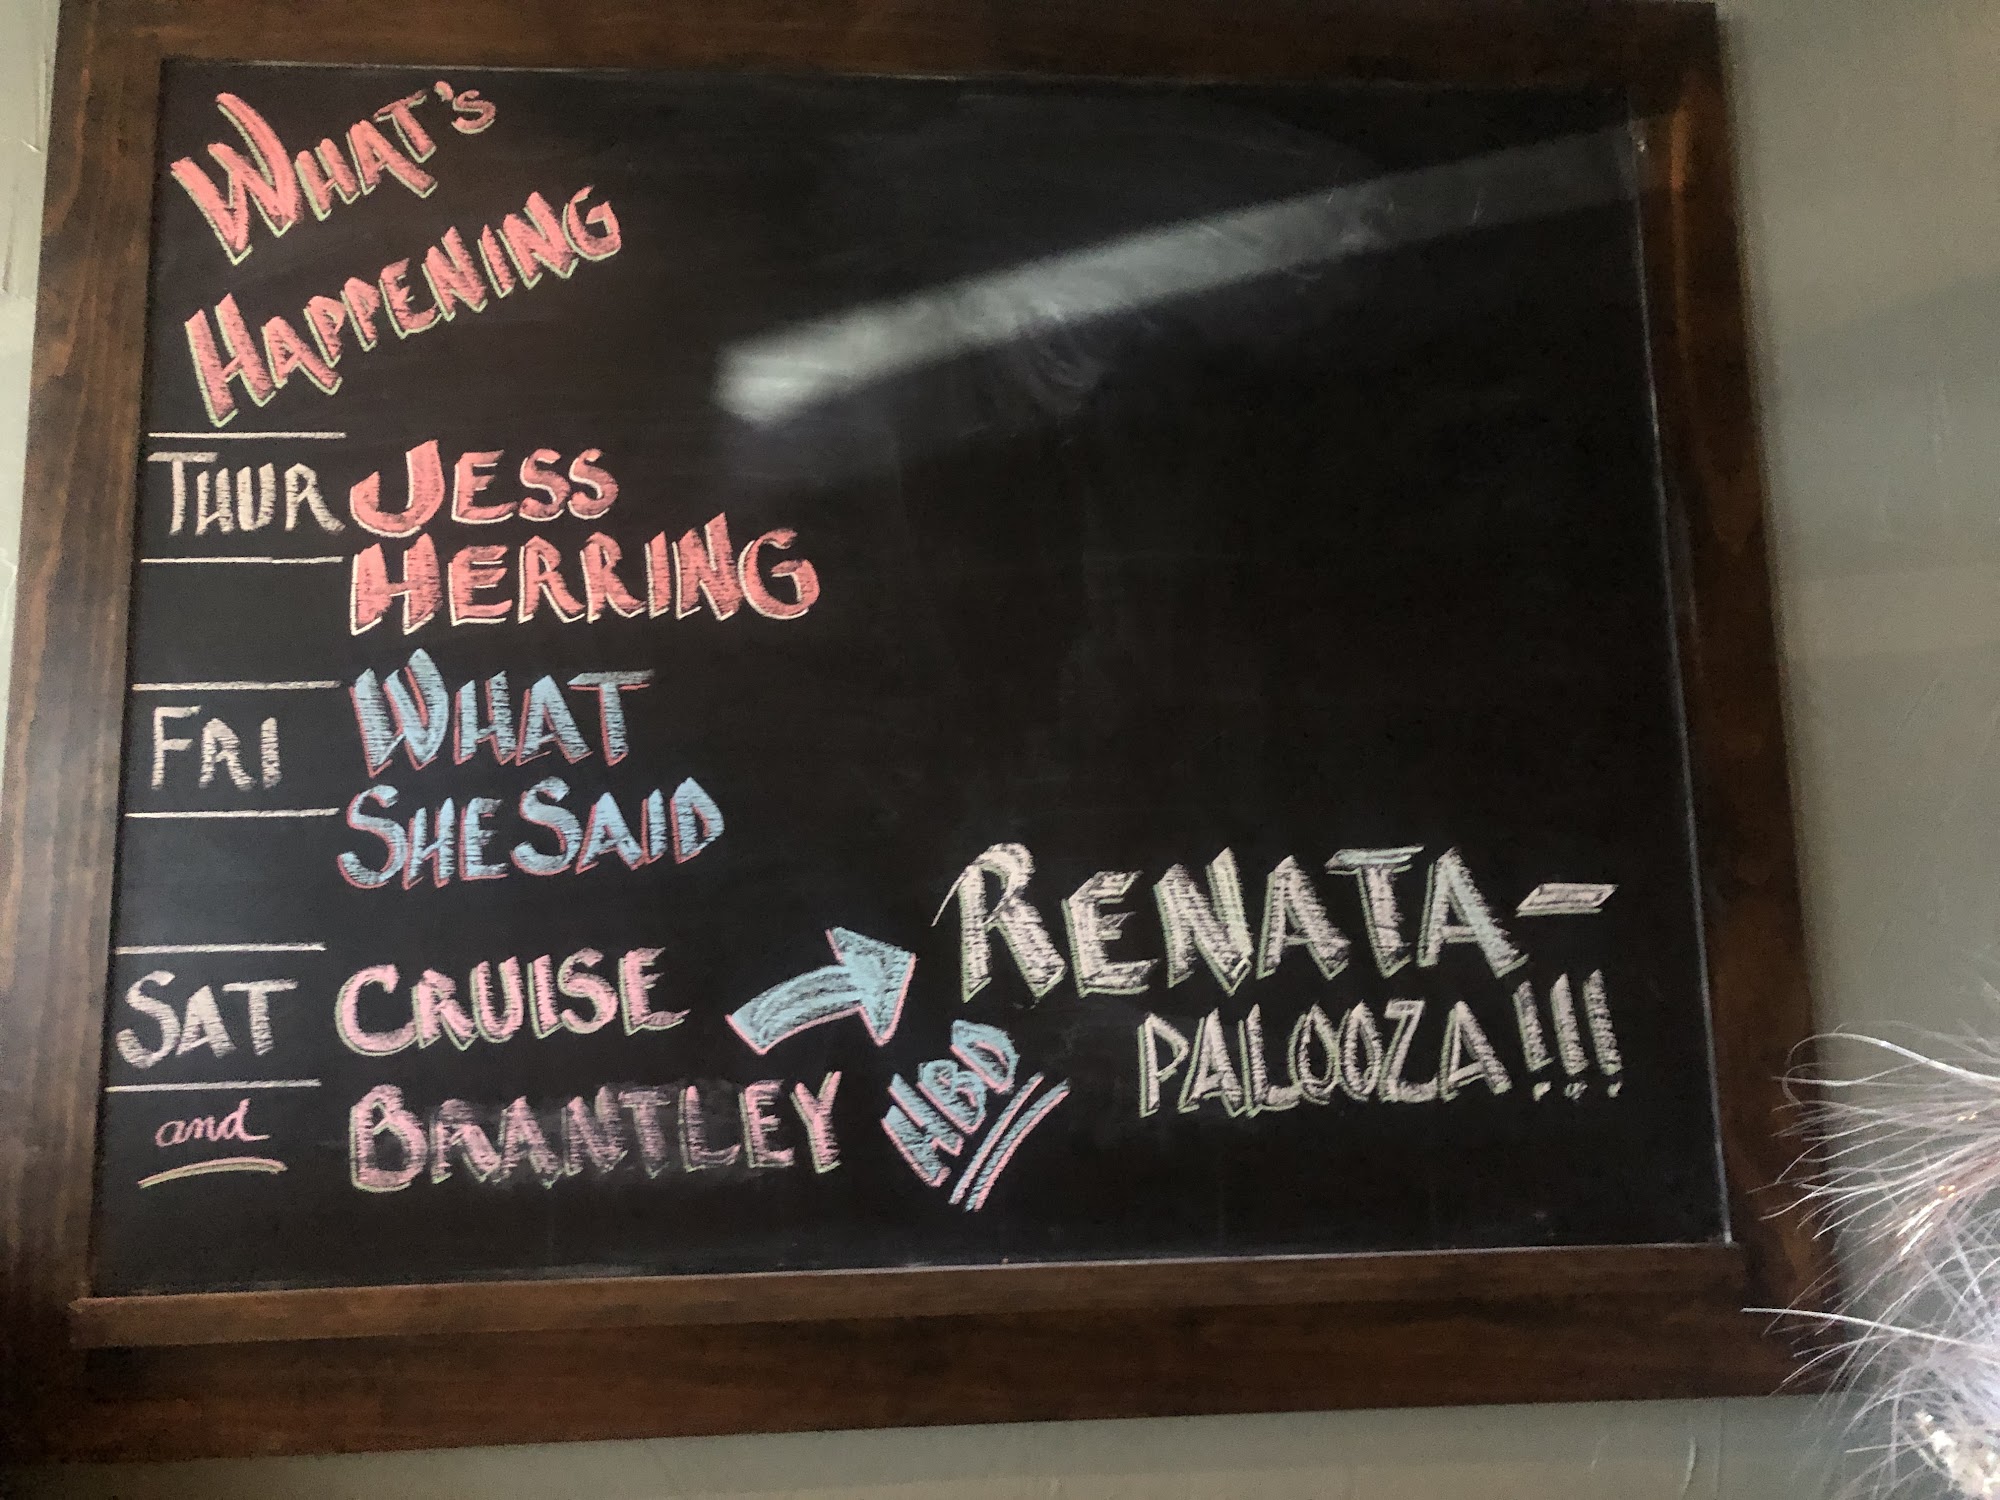 WHAT'S
HAPPENING
THUR JESS
HERRING
FRI WHAT
SHE SAID
SAT CRUISE
and BRANTLEY
HBD
RENATA-
PALOOZA!!!